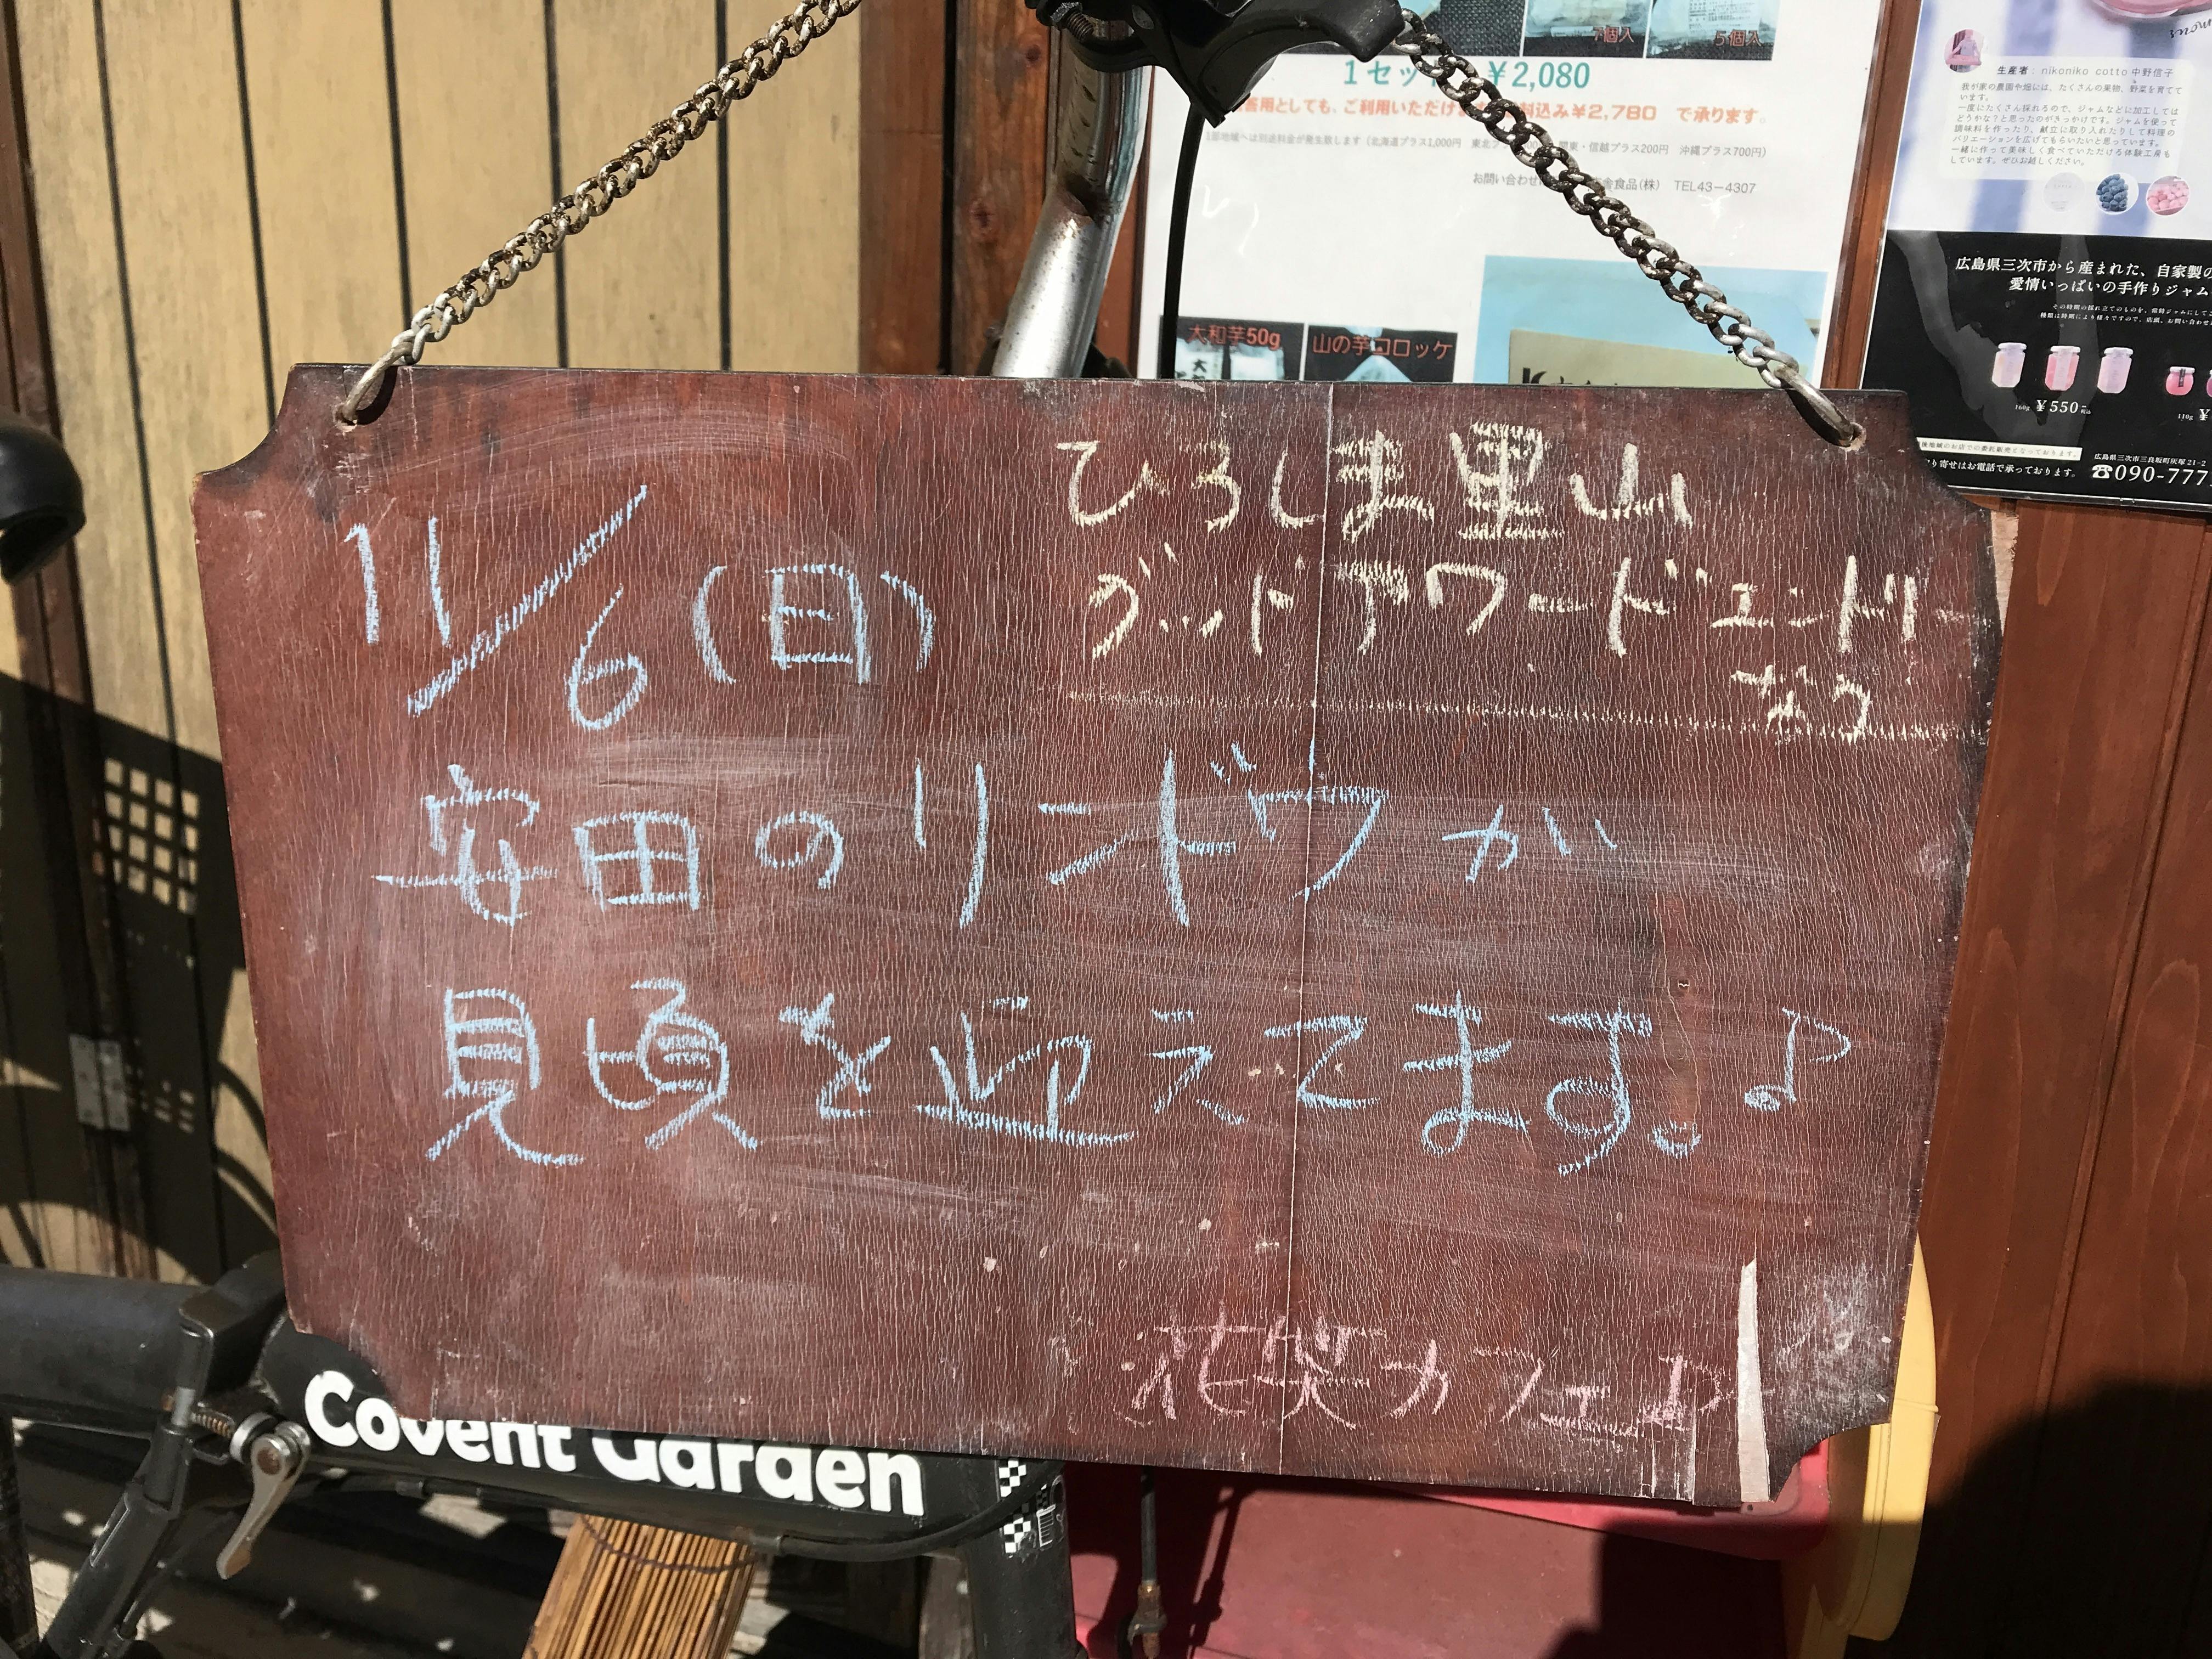 7個入
5個入
¥2,080
ご利用いただけ
料込み¥2,780 で承ります。
(北海道プラス1,000円
関東・信越プラス200円 沖縄プラス700円)
お問い合わせ
食品(株) TEL43-4307
大和芋50g
山の芋コロッケ
生産者: nikoniko cotto 中野信子
我が家の農園や畑には、たくさんの果物、野菜を育てて
います。
一度にたくさん採れるので、ジャムなどに加工しては
どうかな?と思ったのがきっかけです。ジャムを使って
調味料を作ったり、献立に取り入れたりして料理の
バリエーションを広げてもらいたいと思っています。
一緒に作って美味しく食べていただける体験工房も
しています。ぜひお越しください。
広島県三次市から産まれた、自家製の
愛情いっぱいの手作りジャム
160g ¥550
110g ¥
り寄せはお電話で承っております。
広島県三次市三良坂町灰塚21-2
☎090-777
ひろしま里山
グッドアワードエントリー
なう
11/6(日)
安田のリンドウが
見頃を迎えてます。♪
花笑カフェ
Covent Garden